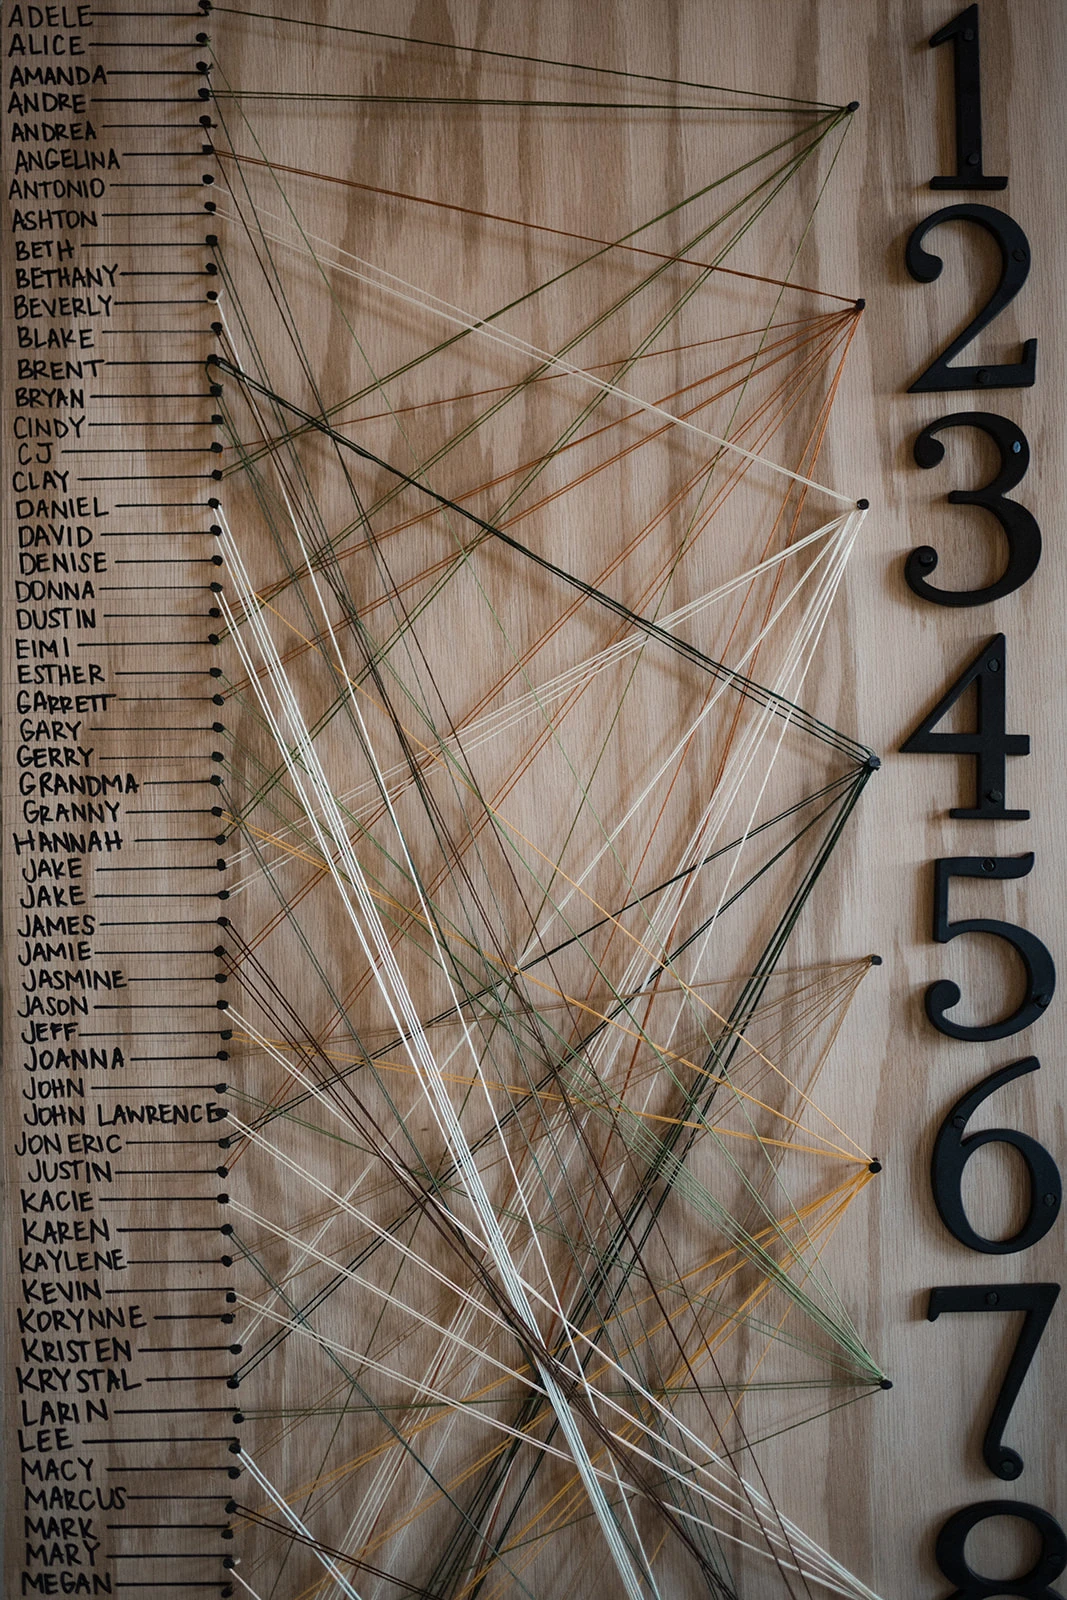 ADELE
ALICE
AMANDA
ANDRE
ANDREA
ANGELINA
ANTONIO
ASHTON
BETH
BETHANY
BEVERLY
BLAKE
BRENT
BRYAN
CINDY
CJ
CLAY
DANIEL
DAVID
DENISE
DONNA
DUSTIN
EIMI
ESTHER
GARRETT
GARY
GERRY
GRANDMA
GRANNY
HANNAH
JAKE
JAKE
JAMES
JAMIE
JASMINE
JASON
JEFF
JOANNA
JOHN
JOHN LAWRENCE
JON ERIC
JUSTIN
KACIE
KAREN
KAYLENE
KEVIN
KORYNNE
KRISTEN
KRYSTAL
LARIN
LEE
MACY
MARCUS
MARK
MARY
MEGAN
1
2
3
4
5
6
7
8